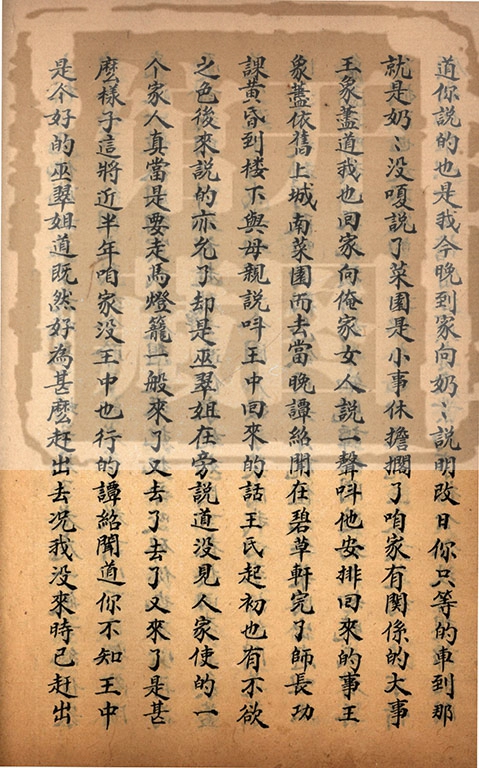 道你説的也是我今晚到家向奶〻説明改日你只等的車到那
就是奶〻没嗄説了菜園是小事休擔擱了咱家有関係的大事
王象藎道我也回家向俺家女人説一聲呌他安排回来的事王
象藎依舊上城南菜園而去當晩譚紹聞在碧草軒完了師長功
課黄昏到楼下與母親説呌王中回來的話王氏起初也有不欲
之色後來説的亦允了却是巫翠姐在旁説道没見人家使的一
个家人真當是要走馬燈籠一般來了又去了去了又來了是甚
麽様子這將近半年咱家没王中也行的譚紹聞道你不知王中
是个好的巫翠姐道既然好為甚麽赶出去况我没來時已赶出